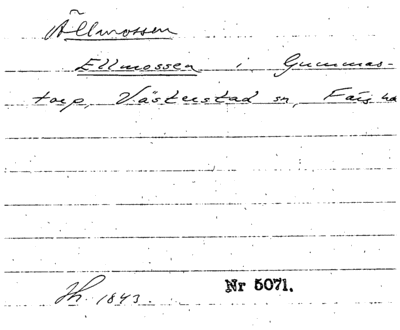 Ällmossen
Ellmossen i Gummas-
torp, Västerstad sn, Färs hd
Jh. 1843.
Nr 5071.